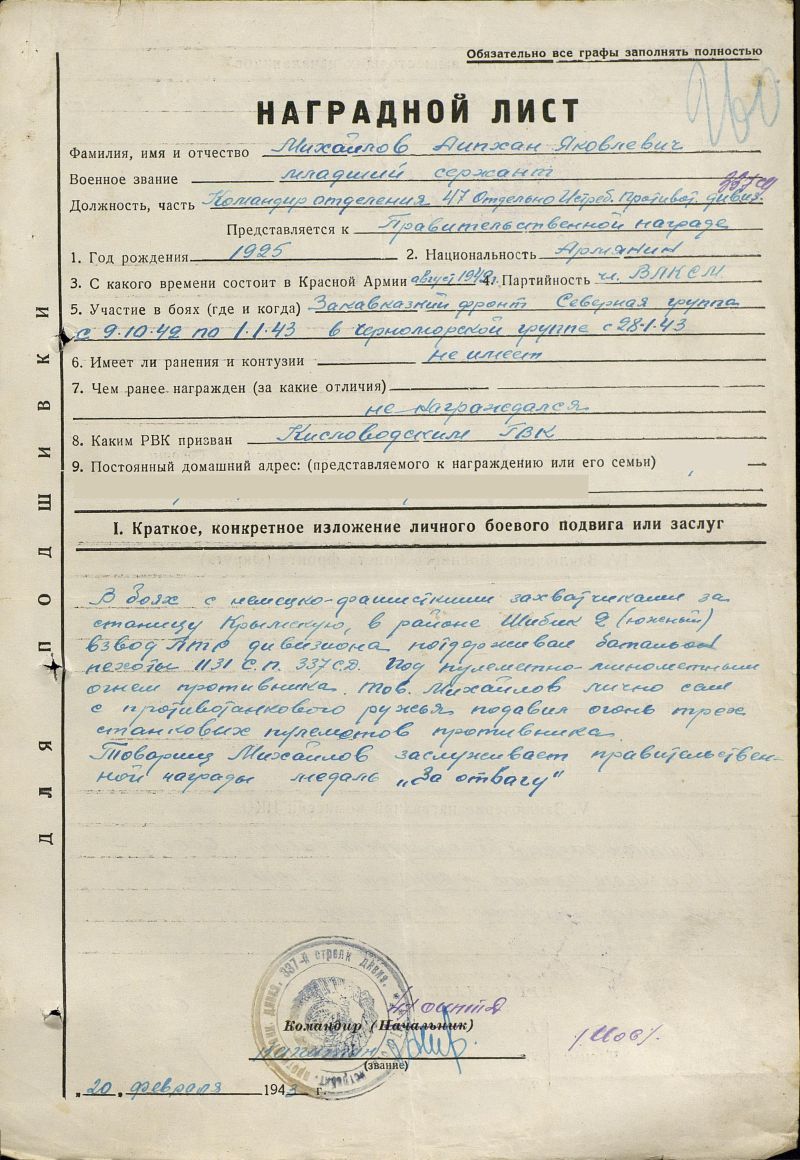 Обязательно все графы заполнять полностью
260
НАГРАДНОЙ ЛИСТ
Фамилия, имя и отчество Михайлов Аипхан Яковлевич
Военное звание младший сержант
337 СД
Должность, часть Командир отделения 47 Отдельно Истреб. Противот. дивиз.
Представляется к Правительственной награде
1. Год рождения 1925 2. Национальность Армянин
3. С какого времени состоит в Красной Армии август 1942г. 4. Партийность чл. ВЛКСМ
5. Участие в боях (где и когда) Закавказкий фронт Северная группа
с 9.10.42 по 1.1.43 в Черноморской группе с 28.1.43
6. Имеет ли ранения и контузии не имеет
7. Чем ранее награжден (за какие отличия)
не награждался
8. Каким РВК призван Кисловодским ГВК
9. Постоянный домашний адрес: (представляемого к награждению или его семьи)
I. Краткое, конкретное изложение личного боевого подвига или заслуг
В боях с немецко-фашисткими захватчиками за
станицу Крымскую, в районе Шибик 2 (южный)
взвод ПТР дивизиона потдерживал батальон
пехоты 1131 С.П. 337 СД. Под пулеметно-минометным
огнем противника. Тов. Михайлов лично сам
с противотанкового ружья подавил огонь трех
станковых пулеметов противника
Товарищ Михайлов заслуживает правительствен-
ной награды медаль „За отвагу"
ДЛЯ ПОДШИВКИ
337-й стрелк. дивиз.
Командир (Начальник)
капитан
(звание)
20 февраля 1943 г.